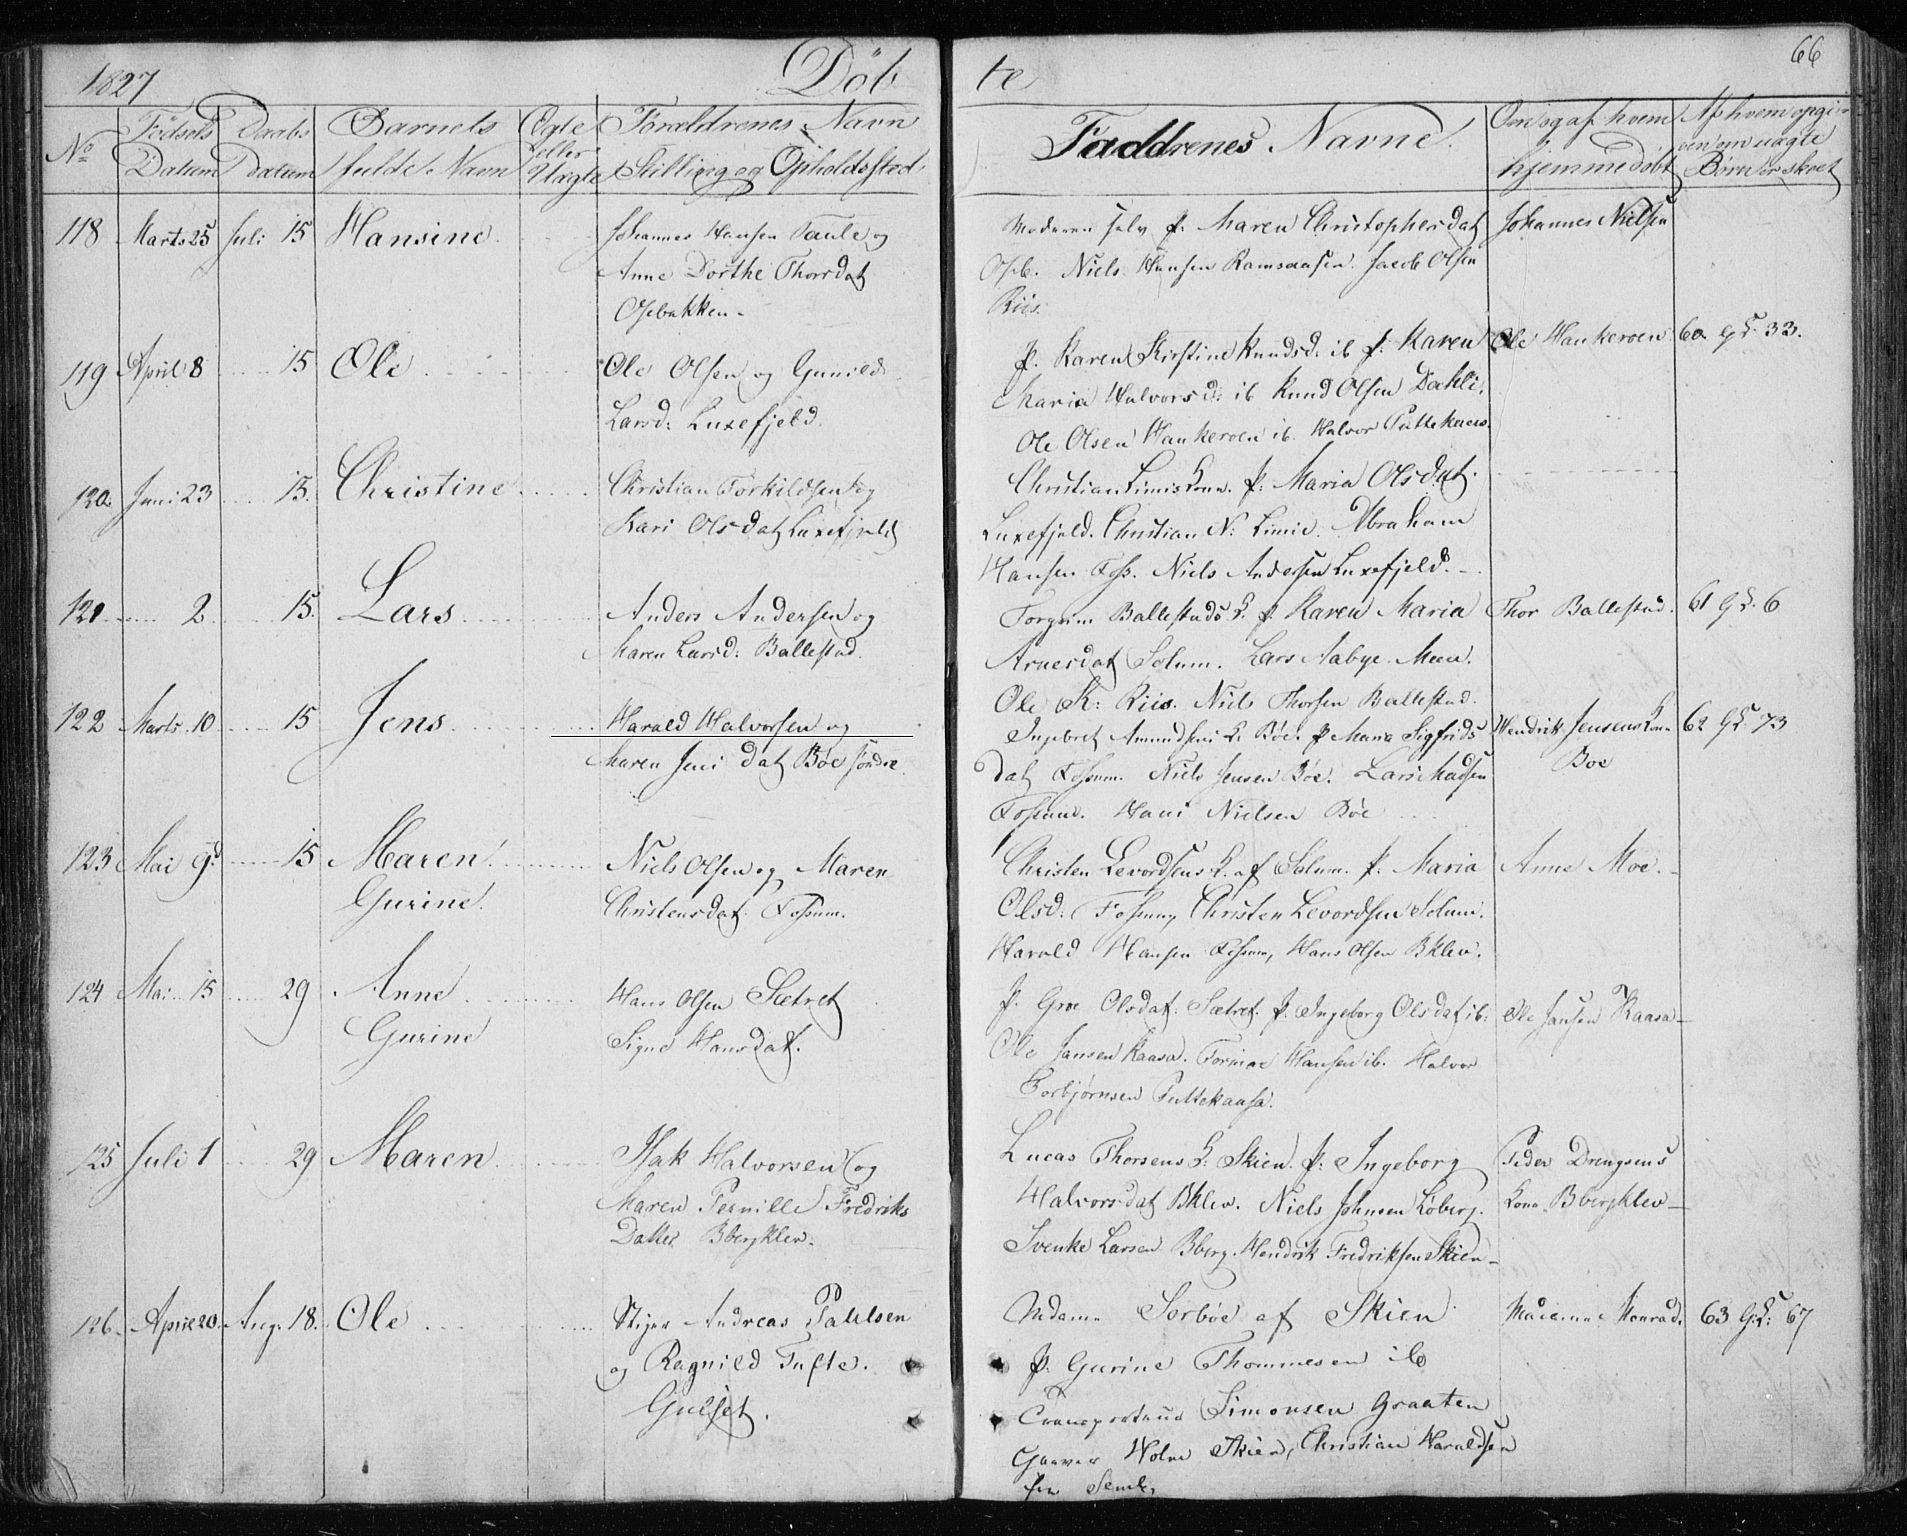 1827 Döb te 66
No Födsels Datum Daabs datum Barnets fulde Navn Ægte eller Uægte Forældrenes Navn Stilling og Opholdssted Faddrenes Navne Om og af hvem hjemmedöbt Af hvem opgiven om uægte
118 Marts 25 Juli 15 Hansine Johannes Hansen Taule og
Anne Dorthe Thorsdat
Opbakken
Moderen selv p. Maren Christophersdat
Opb. Niels Hansen Ramsaasen. Jacob Olsen
Riis.
Johannes Nielsen
119 April 8 15 Ole Ole Olsen og Gunild
Larsd: Luxefjeld
p. Karen Kirstine Knudsd. ib p. Karen
Maria Halvorsd: ib Knud Olsen Dahli,
Ole Olsen Hankeroen ib. Halvor Puttekaas.
Ole Hankeroen 60 33.
120 Juni 23 15. Christine Christian Torkildsen og
Kari Olsdat Luxefjeld
Christian Limis Kone. p: Maria Olsdat.
Luxefjeld. Christian N: Limie. Abraham
Hansen Foss. Niels Andersen Luxefjeld.
121 2 15. Lars Anders Andersen og
Maren Larsd: Ballestad.
Torgrim Ballestads K. p. Karen Maria
Arnesdat Solum. Lars Aabye. Meen.
Ole K: Riis. Niels Thorsen Ballestad.
Thor Ballestad. 61 6
122 Marts 10 15 Jens Harald Halvorsen og
Maren Jensdat Böe söndre
Ingebret Amundsens K. Böe. p Maria Sigfrids
dat Fossum. Niels Jensen Böe. Lars Madsen
Fossum. Hans Nielsen Böe
Hendrik Jensens Kone
Böe
62 73
123 Mai 9 15 Maren
Gurine.
Niels Olsen og Maren
Christensdat Fossum.
Christen Levordsens K. af Solum. p. Maria
Olsd. Fossum, Christen Levordsen Solum.
Harald Hansen Fossum, Hans Olsen Bklev.
Anne Moe.
124 Mai 15 29 Anne
Gurine
Hans Olsen Sætret
Signe Hansdat.
p. Groe Olsdat. Sætret. p. Ingeborg Olsdat ib.
Ole Jansen Kaasa. Tormoe Hansen ib. Halvor
Torbjørnsen Puttekaasa.
Ole Jansen Kaasa
125 Juli 1 29 Maren Isak Halvorsen og
Maren Pernille Fredriks
Datter Bbergklev.
Lucas Thorsens K: Skien. p: Ingeborg
Halvorsdat Bklev. Niels Johnsen Löberg.
Svenke Larsen Bberg. Hendrik Fredriksen Skien
Peder Drengsens
Kone Bbergklev
126. April 20. Aug. 18. Ole Stiger Andreas Pahlsen
og Ragnild Tufte.
Gulset.
Madame Sorböe af Skien
p. Gurine Thommesen ib
Simonsen Graaten
Garver Holm Skien, Christian Haraldsen
Madame Monrad. 63 67